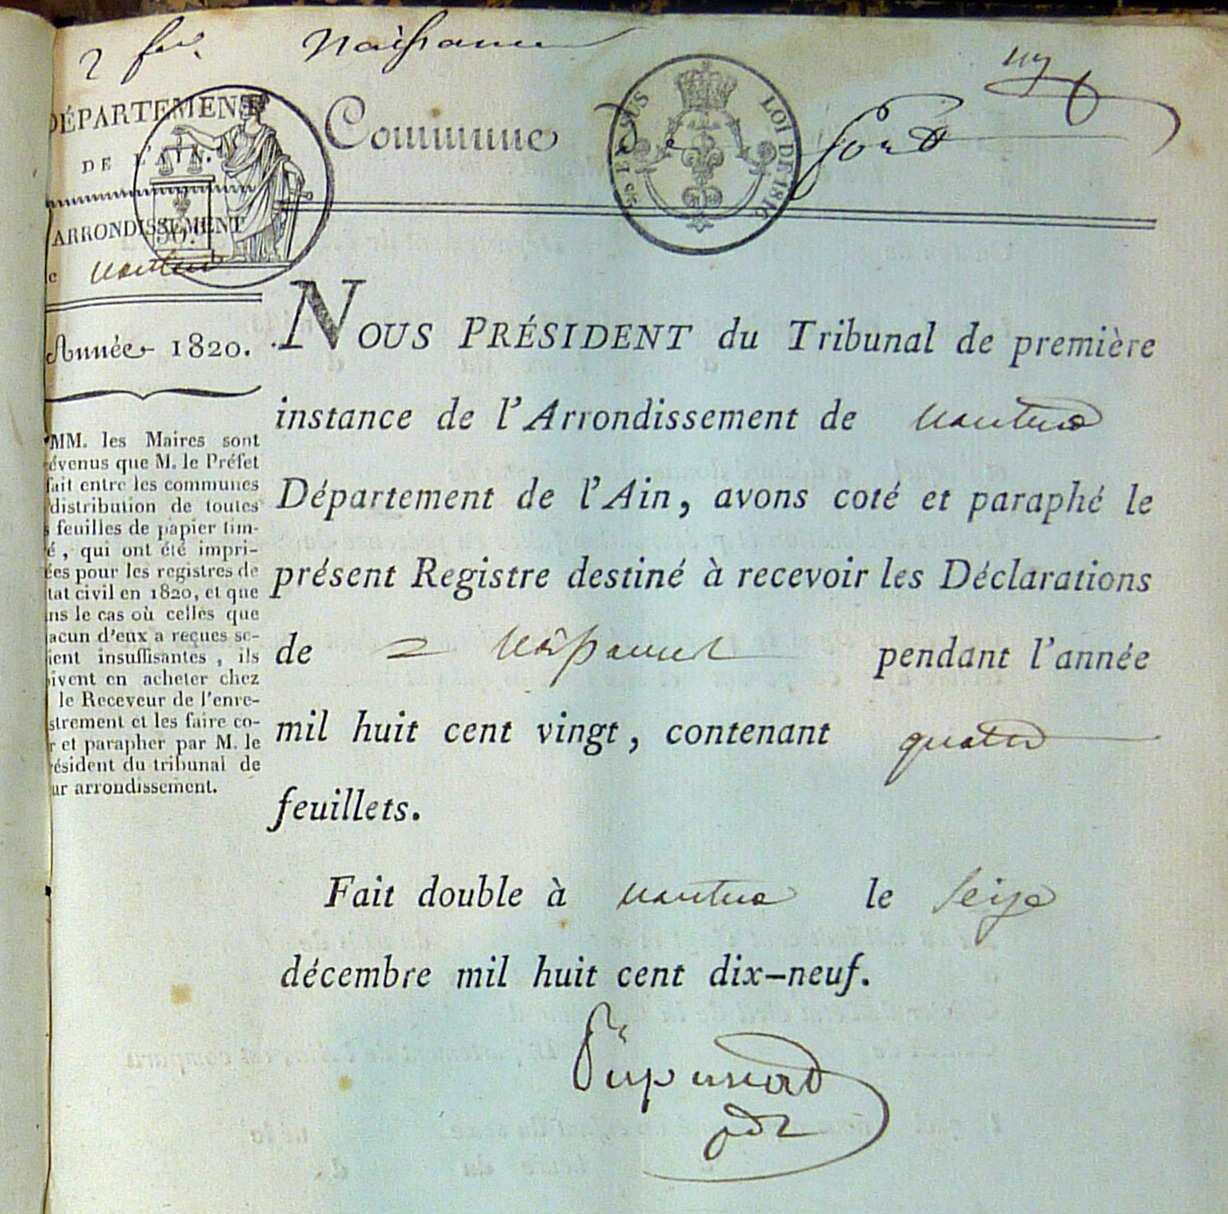 2 feu. Naissance
DÉPARTEMENT
DE L'AIN.
ARRONDISSEMENT
Nantua
Commune de Fort
SUS
LOI DE 1816
50.
Année 1820.
MM. les Maires sont
évenus que M. le Préfet
fait entre les communes
distribution de toutes
s feuilles de papier tim-
é, qui ont été impri-
ées pour les registres de
tat civil en 1820, et que
ns le cas où celles que
acun d'eux a reçues se-
ient insuffisantes, ils
ivent en acheter chez
le Receveur de l'enre-
strement et les faire co-
r et parapher par M. le
ésident du tribunal de
ur arrondissement.
NOUS PRÉSIDENT du Tribunal de première
instance de l'Arrondissement de Nantua
Département de l'Ain, avons coté et paraphé le
présent Registre destiné à recevoir les Déclarations
de Naissances pendant l'année
mil huit cent vingt, contenant quatre
feuillets.
Fait double à Nantua le seize
décembre mil huit cent dix-neuf.